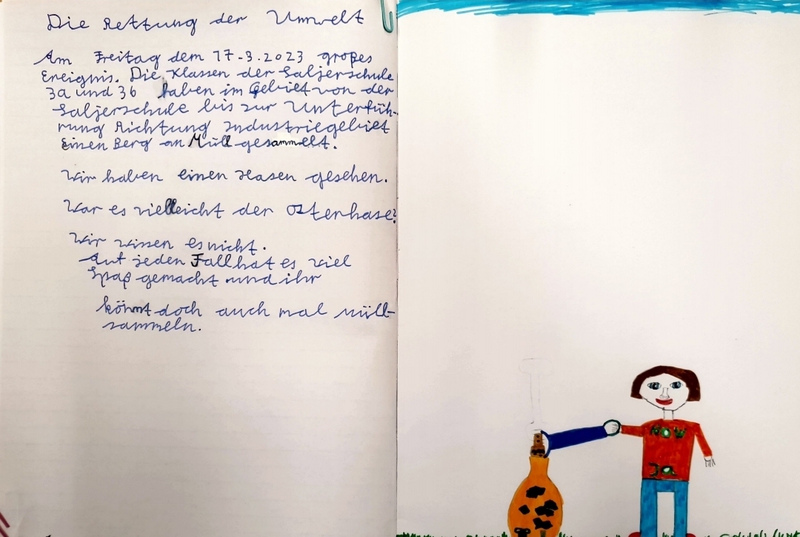 Die Rettung der Umwelt
Am Freitag dem 17.3.2023 großes
Ereignis. Die Klassen der Saljerschule
3a und 3b haben im Gebiet von der
Saljerschule bis zur Unterfüh-
rung Richtung Industriegebiet
einen Berg an Müll gesammelt.
Wir haben einen Hasen gesehen.
War es vielleicht der Osterhase?
Wir wissen es nicht.
Auf jeden Fall hat es viel
Spaß gemacht und ihr
könnt doch auch mal müll-
sammeln.
3a